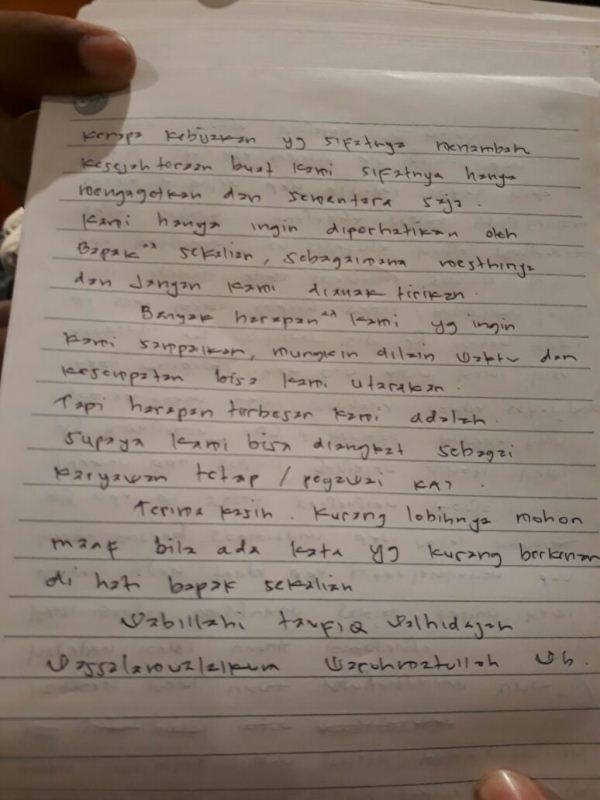 kenapa kebijakan yg sifatnya menambah
kesejahteraan buat kami sifatnya hanya
mengagetkan dan sementara saja.
Kami hanya ingin diperhatikan oleh
Bapak²² sekalian, sebagaimana mesthinya
dan Jangan kami dianak tirikan.
Banyak harapan²² kami yg ingin
kami sampaikan, mungkin dilain waktu dan
kesempatan bisa kami utarakan.
Tapi harapan terbesar kami adalah.
Supaya kami bisa diangkat sebagai
karyawan tetap / pegawai KAI.
Terima kasih. Kurang lebihnya mohon
maaf bila ada kata yg kurang berkenan
di hati bapak sekalian
Wabillahi taufiq Walhidayah
Wassalamualaikum Warohmatullah Wb.